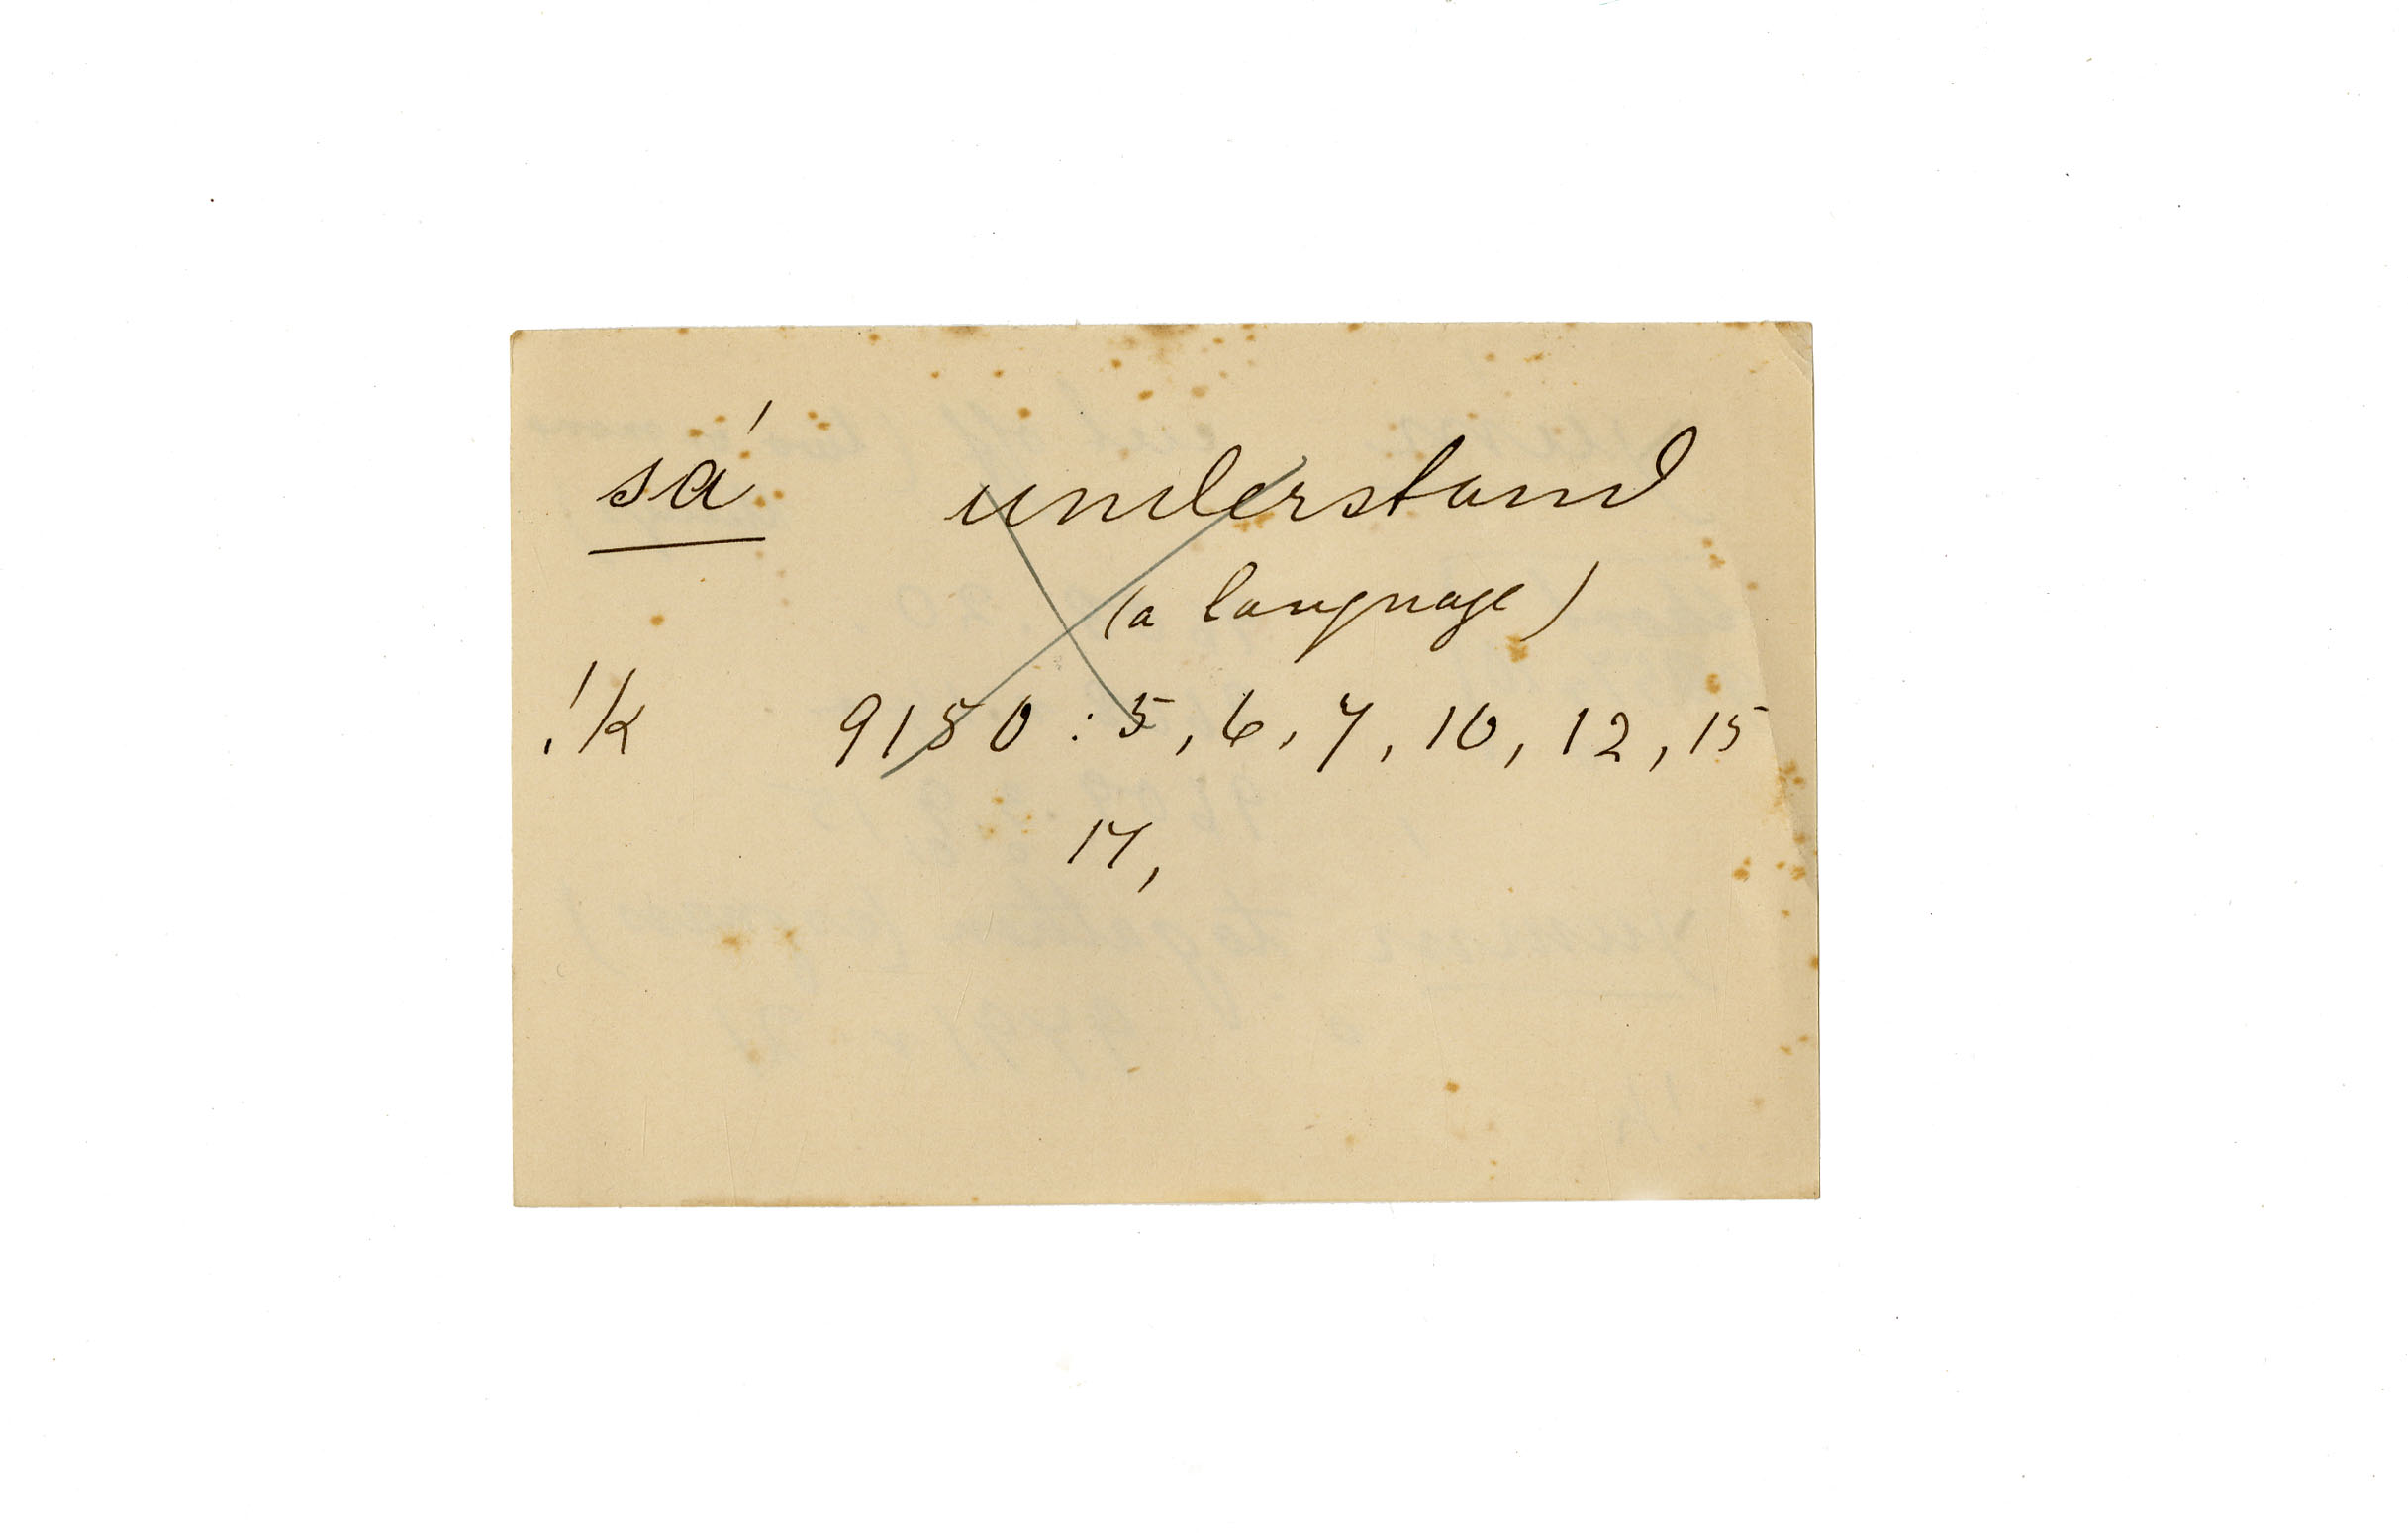 sá understand
(a language)
!k 9150 : 5, 6, 7, 10, 12, 15
17,